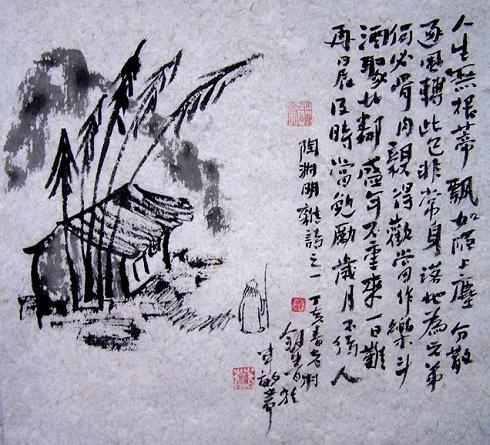 人生無根蒂飄如陌上塵分散
逐風轉此已非常身落地為兄弟
何必骨肉親得歡當作樂斗
酒聚比鄰盛年不重來一日難
再晨及時當勉勵歲月不待人
陶渊明雜詩之一丁亥春老村